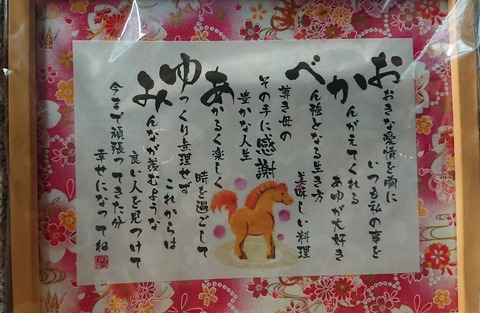 おおきな愛情を胸に
いつも私の事を
かんがえてくれる
あゆが大好き
べん強となる生き方
美味しい料理
尊き母の
その手に感謝
豊かな人生
あかるく楽しく
時を過ごして
ゆっくり無理せず
これからは
みんなが羨むような
良い人を見つけて
今まで頑張ってきた分
幸せになってね